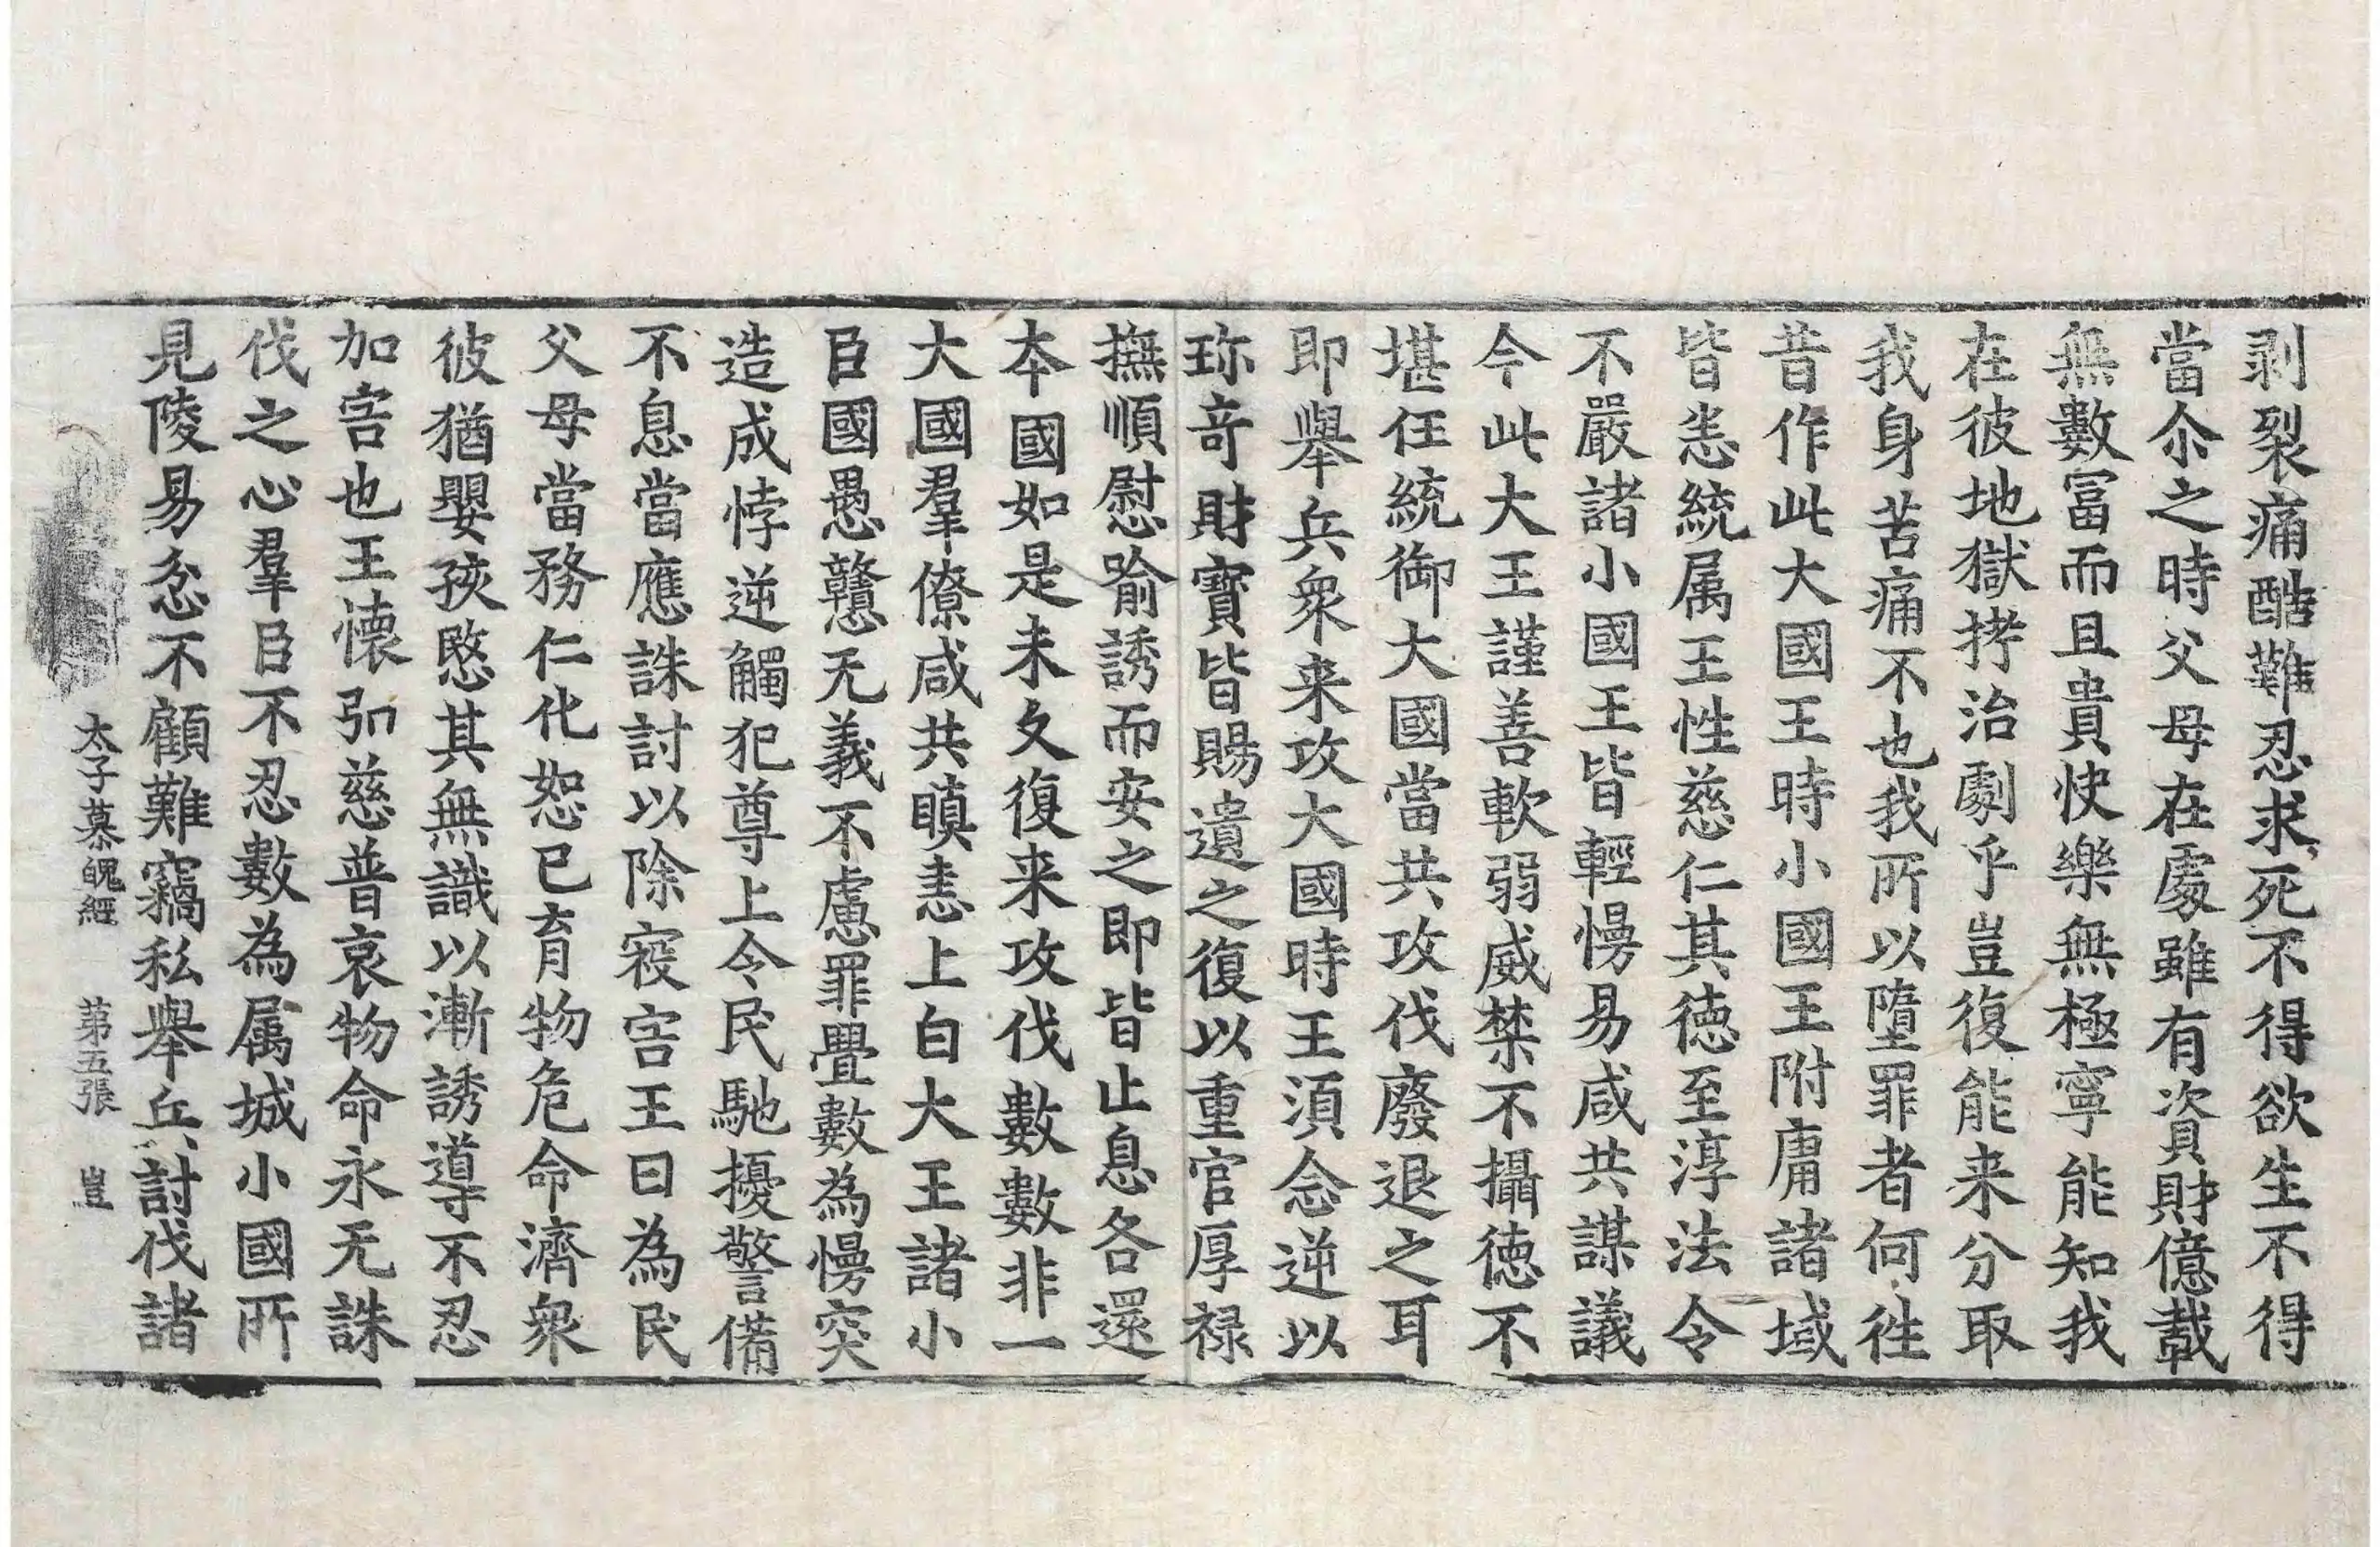 剥裂痛酷難忍求死不得欲生不得
當尒之時父母在處雖有資財億載
無數冨而且貴快樂無極寧能知我
在彼地獄拷治劇乎豈復能来分取
我身苦痛不也我所以墮罪者何徃
昔作此大國王時小國王附庸諸域
皆恙統属王性慈仁其徳至淳法令
不嚴諸小國王皆輕慢易咸共謀議
今此大王謹善軟弱威禁不攝徳不
堪任統御大國當共攻伐廢退之耳
即舉兵衆来攻大國時王湏念逆以
珎奇財寳皆賜遺之復以重官厚禄
撫順慰喻誘而安之即皆止息各還
夲國如是未久復来攻伐數數非一
大國羣僚咸共瞋恚上白大王諸小
臣國愚戇无義不慮罪舋數為慢突
造成悖逆觸犯尊上令民馳擾警備
不息當應誅討以除㓂害王曰為民
父母當務仁化恕已育物危命濟衆
彼猶嬰孩愍其無識以漸誘導不忍
加害也王懷弘慈普哀物命永无誅
伐之心羣臣不忍數為属城小國所
見陵易忿不顧難竊私舉兵討伐諸
太子慕魄經　第五張　豈